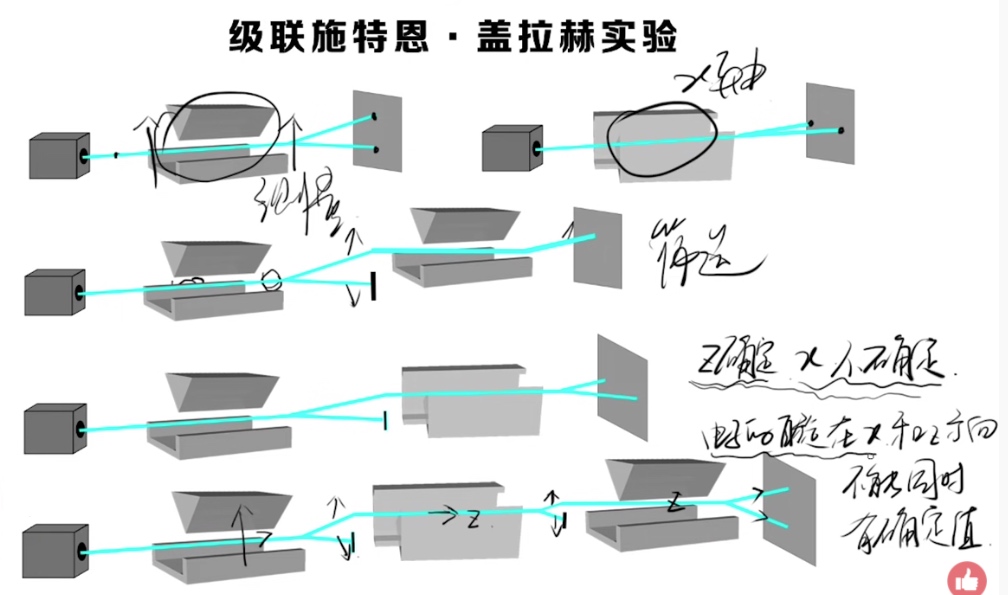 级联施特恩·盖拉赫实验
x 轴
筛选
Z确定 x 不确定.
电子的自旋在 x 和 z 方向
不能同时
有确定值
Z
Z